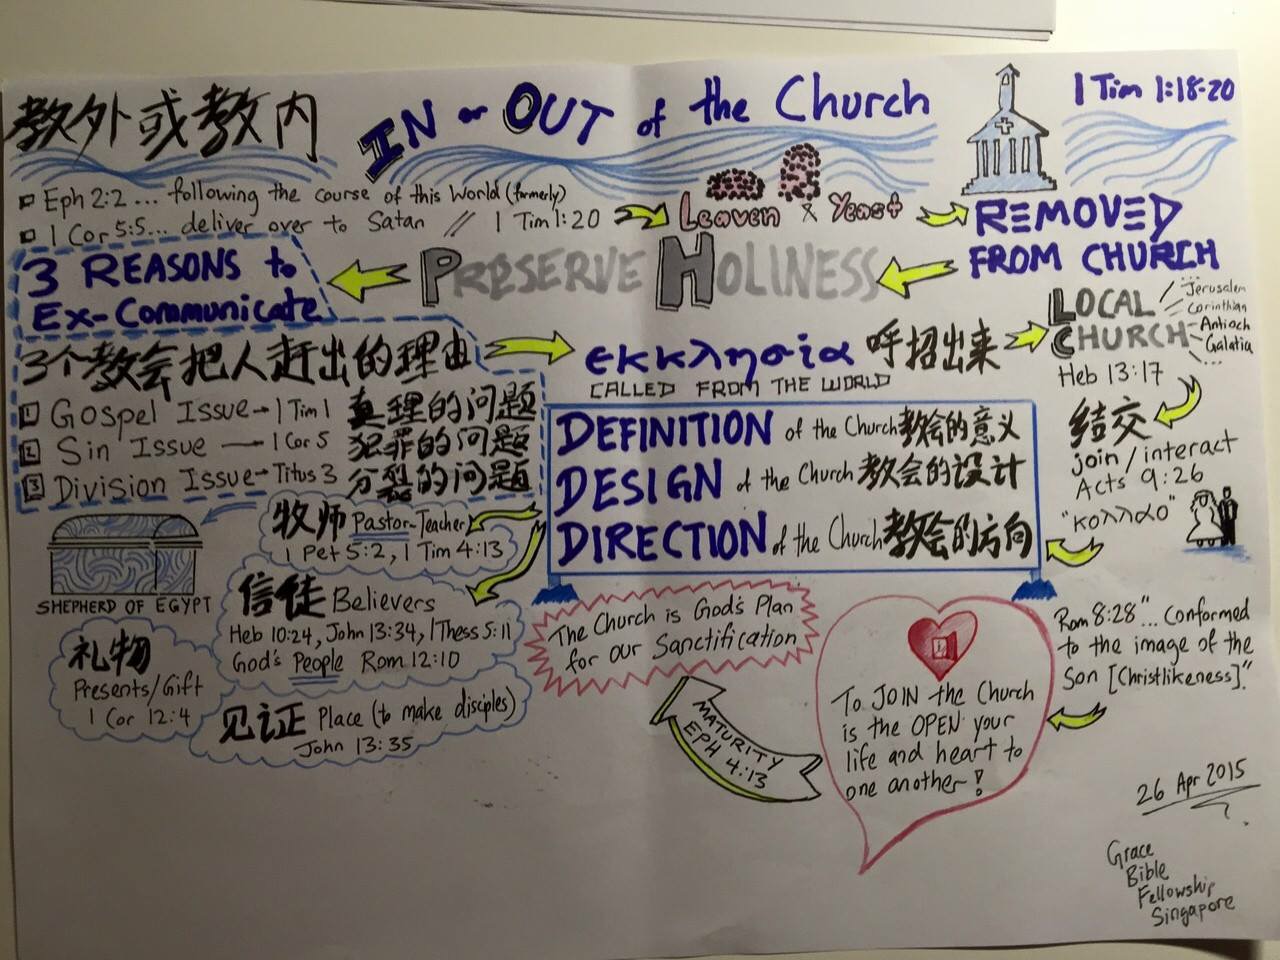 教外或教内
IN or OUT of the Church
1 Tim 1:18-20
Eph 2:2 ... following the course of this World (formerly)
1 Cor 5:5... deliver over to Satan // 1 Tim 1:20
Leaven & Yeast
REMOVED
FROM CHURCH
PRESERVE HOLINESS
3 REASONS to
Ex-Communicate
3个教会把人赶出的理由
1 Gospel Issue → 1 Tim 1 真理的问题
2 Sin Issue → 1 Cor 5 犯罪的问题
3 Division Issue → Titus 3 分裂的问题
εκκλησία 呼招出来
CALLED FROM THE WORLD
LOCAL
CHURCH
Jerusalem
Corinthian
Antioch
Galatia
...
Heb 13:17
结交
join / interact
Acts 9:26
"κολλαο"
DEFINITION of the Church 教会的意义
DESIGN of the Church 教会的设计
DIRECTION of the Church 教会的方向
牧师 Pastor-Teacher
1 Pet 5:2, 1 Tim 4:13
SHEPHERD OF EGYPT
信徒 Believers
Heb 10:24, John 13:34, 1 Thess 5:11
God's People Rom 12:10
礼物
Presents/Gift
1 Cor 12:4
见证 Place (to make disciples)
John 13:35
The Church is God's Plan
for our Sanctification
MATURITY
EPH 4:13
To JOIN the Church
is the OPEN your
life and heart to
one another!
Rom 8:28 "... Conformed
to the image of the
Son [Christlikeness]."
26 Apr 2015
Grace
Bible
Fellowship
Singapore